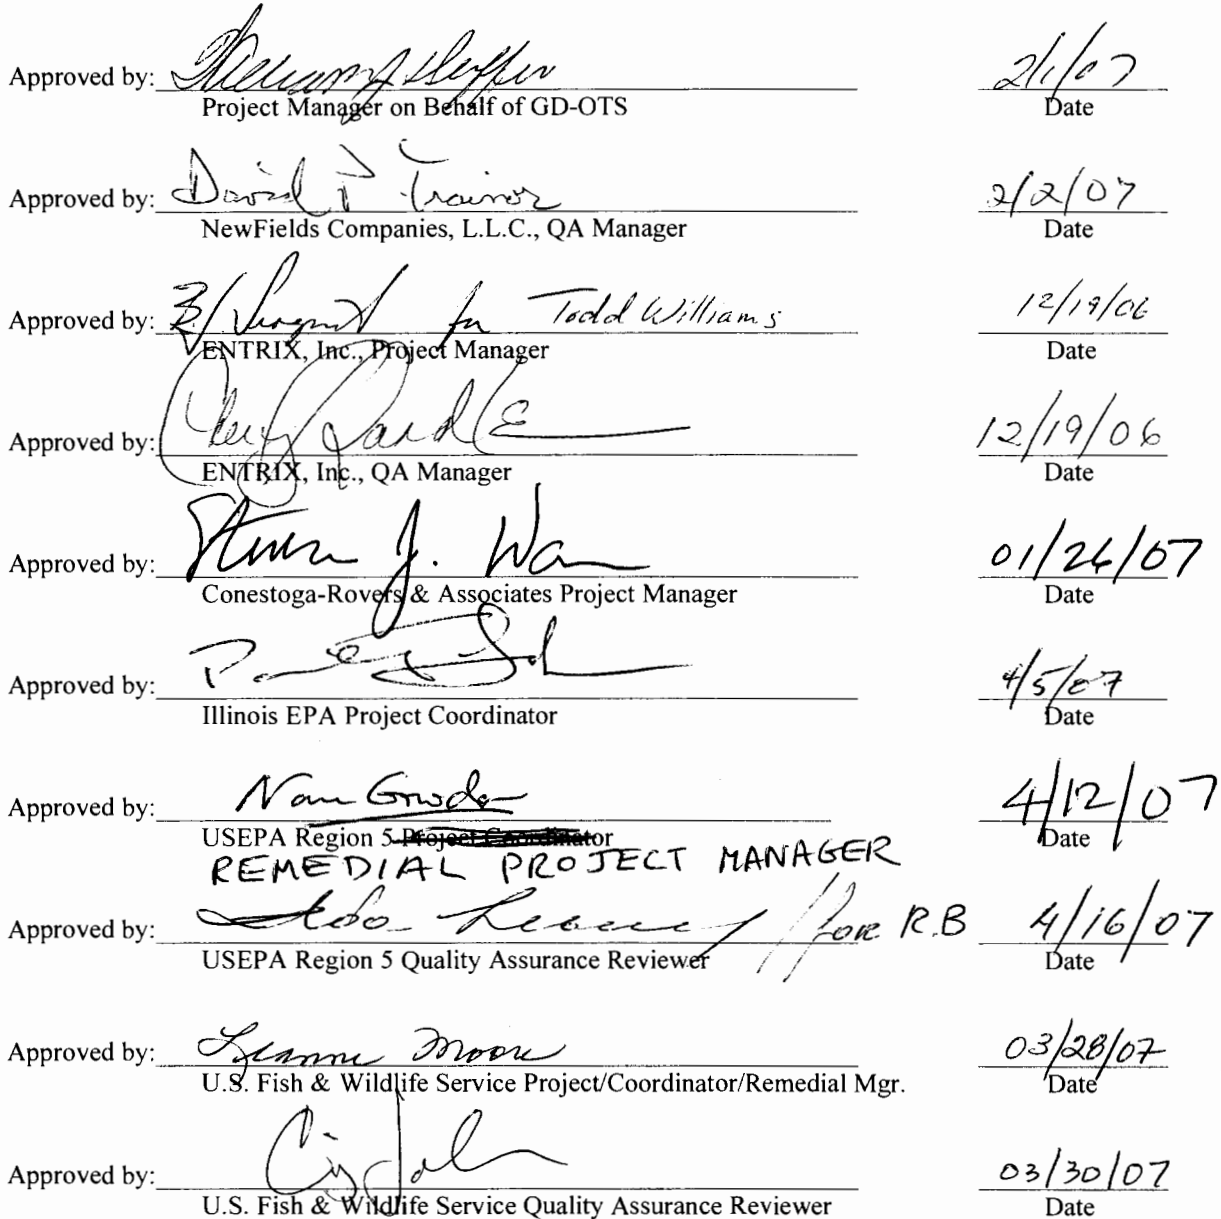 Approved by: 2/1/07
Project Manager on Behalf of GD-OTS Date
Approved by: David P Trainor 2/2/07
NewFields Companies, L.L.C., QA Manager Date
Approved by: for Todd Williams 12/19/06
ENTRIX, Inc., Project Manager Date
Approved by: 12/19/06
ENTRIX, Inc., QA Manager Date
Approved by: Steven J. 01/26/07
Conestoga-Rovers & Associates Project Manager Date
Approved by: 4/5/07
Illinois EPA Project Coordinator Date
Approved by: 4/12/07
USEPA Region 5 Project Coordinator Date
REMEDIAL PROJECT MANAGER
Approved by: for R.B 4/16/07
USEPA Region 5 Quality Assurance Reviewer Date
Approved by: Leanne Moore 03/28/07
U.S. Fish & Wildlife Service Project/Coordinator/Remedial Mgr. Date
Approved by: 03/30/07
U.S. Fish & Wildlife Service Quality Assurance Reviewer Date